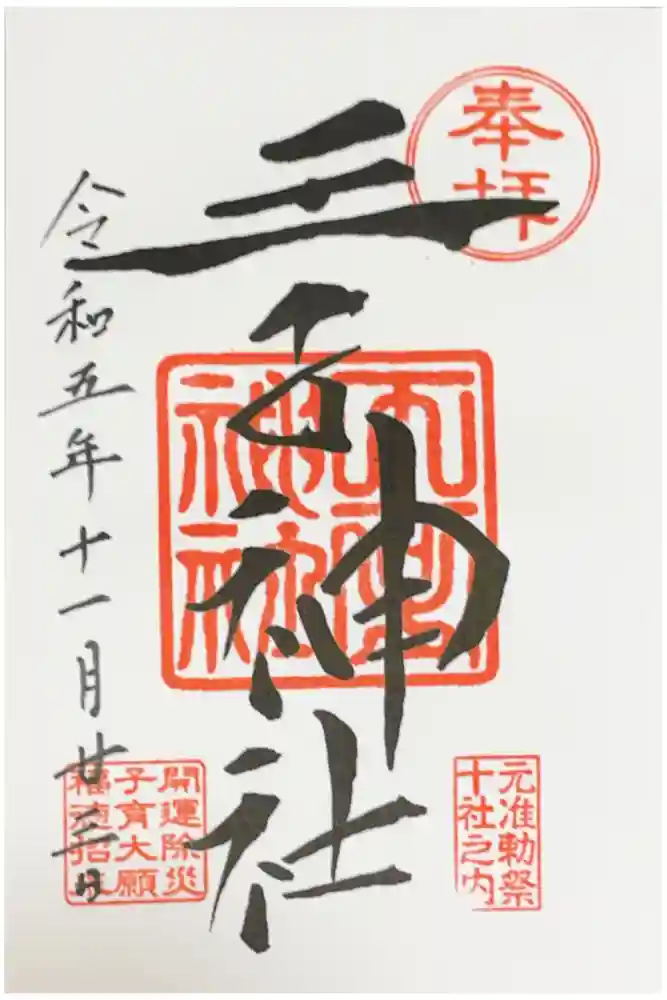 奉拝
王子神社
元准勅祭
十社之内
開運除災
子育大願
福徳招来
令和五年十一月廿三日